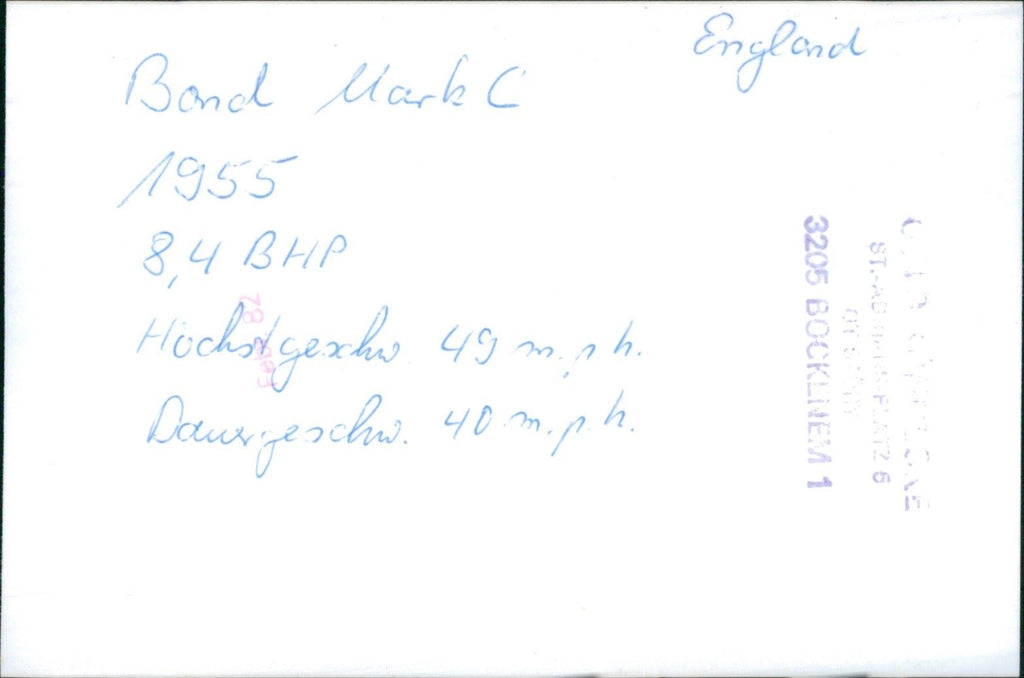 England
Bond Mark C
1955
8,4 BHP
Höchstgeschw. 49 m.p.h.
Dauergeschw. 40 m.p.h.
PLATZ 6
3205 BOCKENEM 1